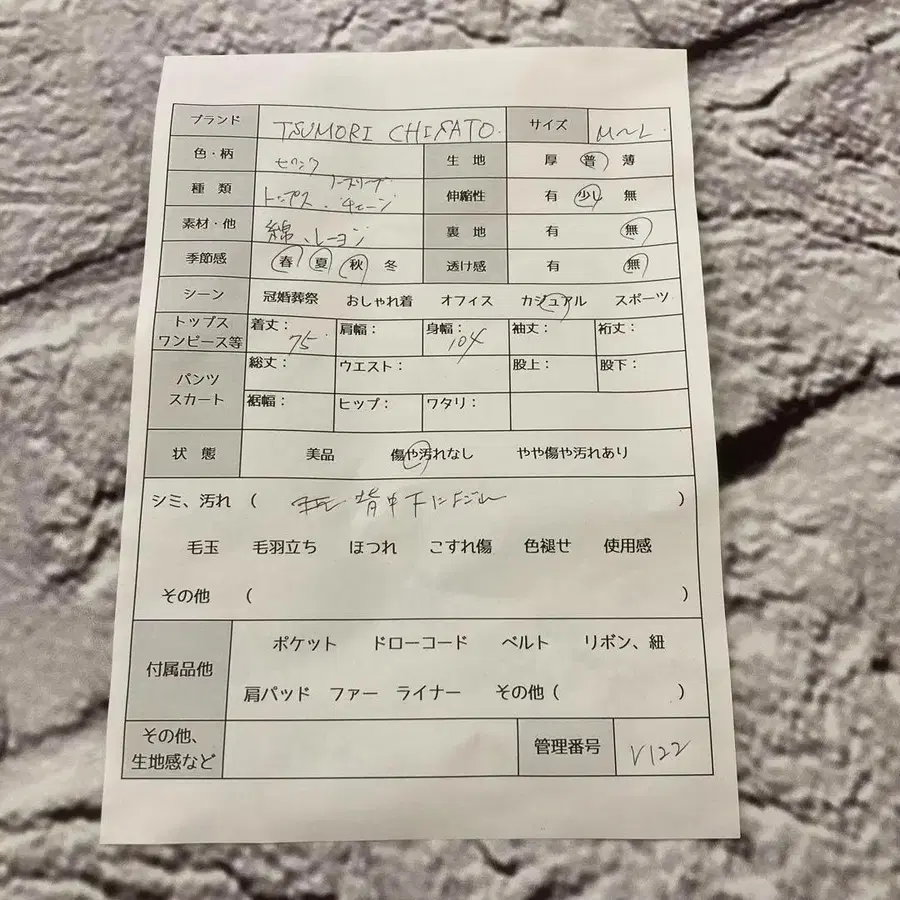 ブランド TSUMORI CHISATO. サイズ M～L.
色・柄 生地 厚 普 薄
種類 トップス、チェーン ノースリーブ 伸縮性 有 少し 無
素材・他 綿、レーヨン 裏地 有 無
季節感 春 夏 秋 冬 透け感 有 無
シーン 冠婚葬祭 おしゃれ着 オフィス カジュアル スポーツ
トップス ワンピース等 着丈： 75 肩幅： 身幅： 104 袖丈： 裄丈：
パンツ スカート 総丈： ウエスト： 股上： 股下：
裾幅： ヒップ： ワタリ：
状態 美品 傷や汚れなし やや傷や汚れあり
シミ、汚れ （ 背中下に ）
毛玉 毛羽立ち ほつれ こすれ傷 色褪せ 使用感
その他 （ ）
付属品他 ポケット ドローコード ベルト リボン、紐
肩パッド ファー ライナー その他（ ）
その他、 生地感など 管理番号 V122